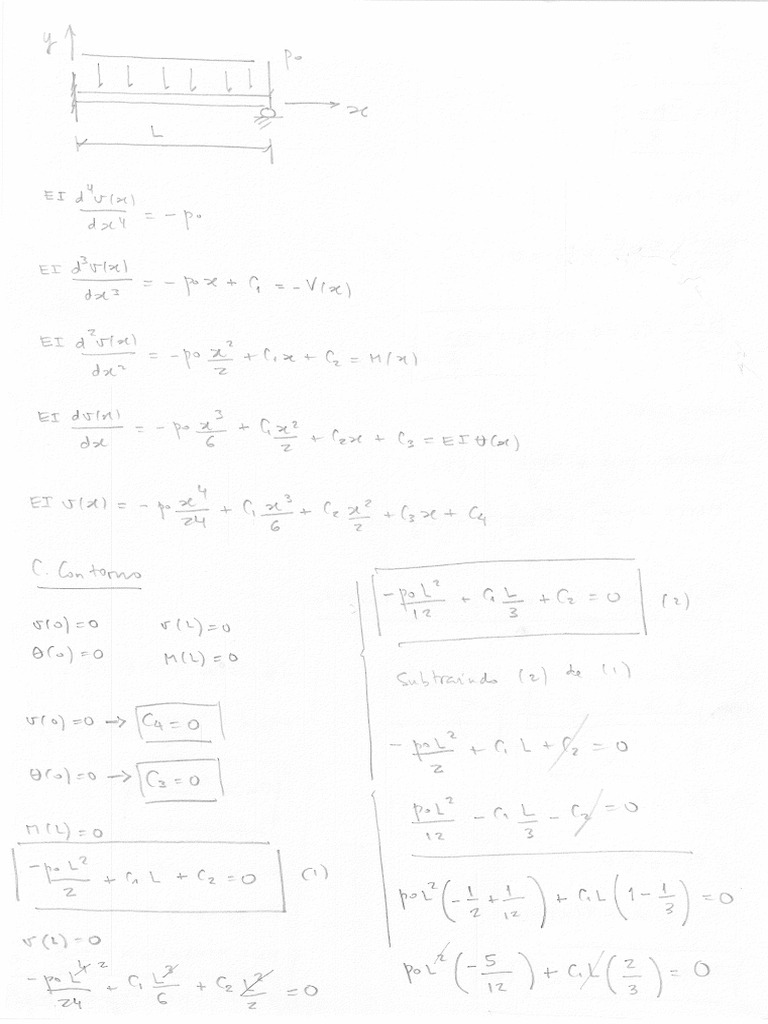 y
p₀
x
L
EI d⁴v(x)/dx⁴ = -p₀
EI d³v(x)/dx³ = -p₀x + C₁ = -V(x)
EI d²v(x)/dx² = -p₀ x²/2 + C₁x + C₂ = M(x)
EI dv(x)/dx = -p₀ x³/6 + C₁ x²/2 + C₂x + C₃ = EI θ(x)
EI v(x) = -p₀ x⁴/24 + C₁ x³/6 + C₂ x²/2 + C₃x + C₄
C. Contorno
v(0)=0 v(L)=0
θ(0)=0 M(L)=0
v(0)=0 → C₄=0
θ(0)=0 → C₃=0
M(L)=0
-p₀L²/2 + C₁L + C₂ = 0 (1)
v(L)=0
-p₀L⁴ ²/24 + C₁ L³/6 + C₂ L²/2 = 0
-p₀L²/12 + C₁ L/3 + C₂ = 0 (2)
Subtraindo (2) de (1)
-p₀L²/2 + C₁L + C₂ = 0
p₀L²/12 - C₁ L/3 - C₂ = 0
p₀L²(-1/2 + 1/12) + C₁L(1 - 1/3) = 0
p₀L²(-5/12) + C₁L(2/3) = 0